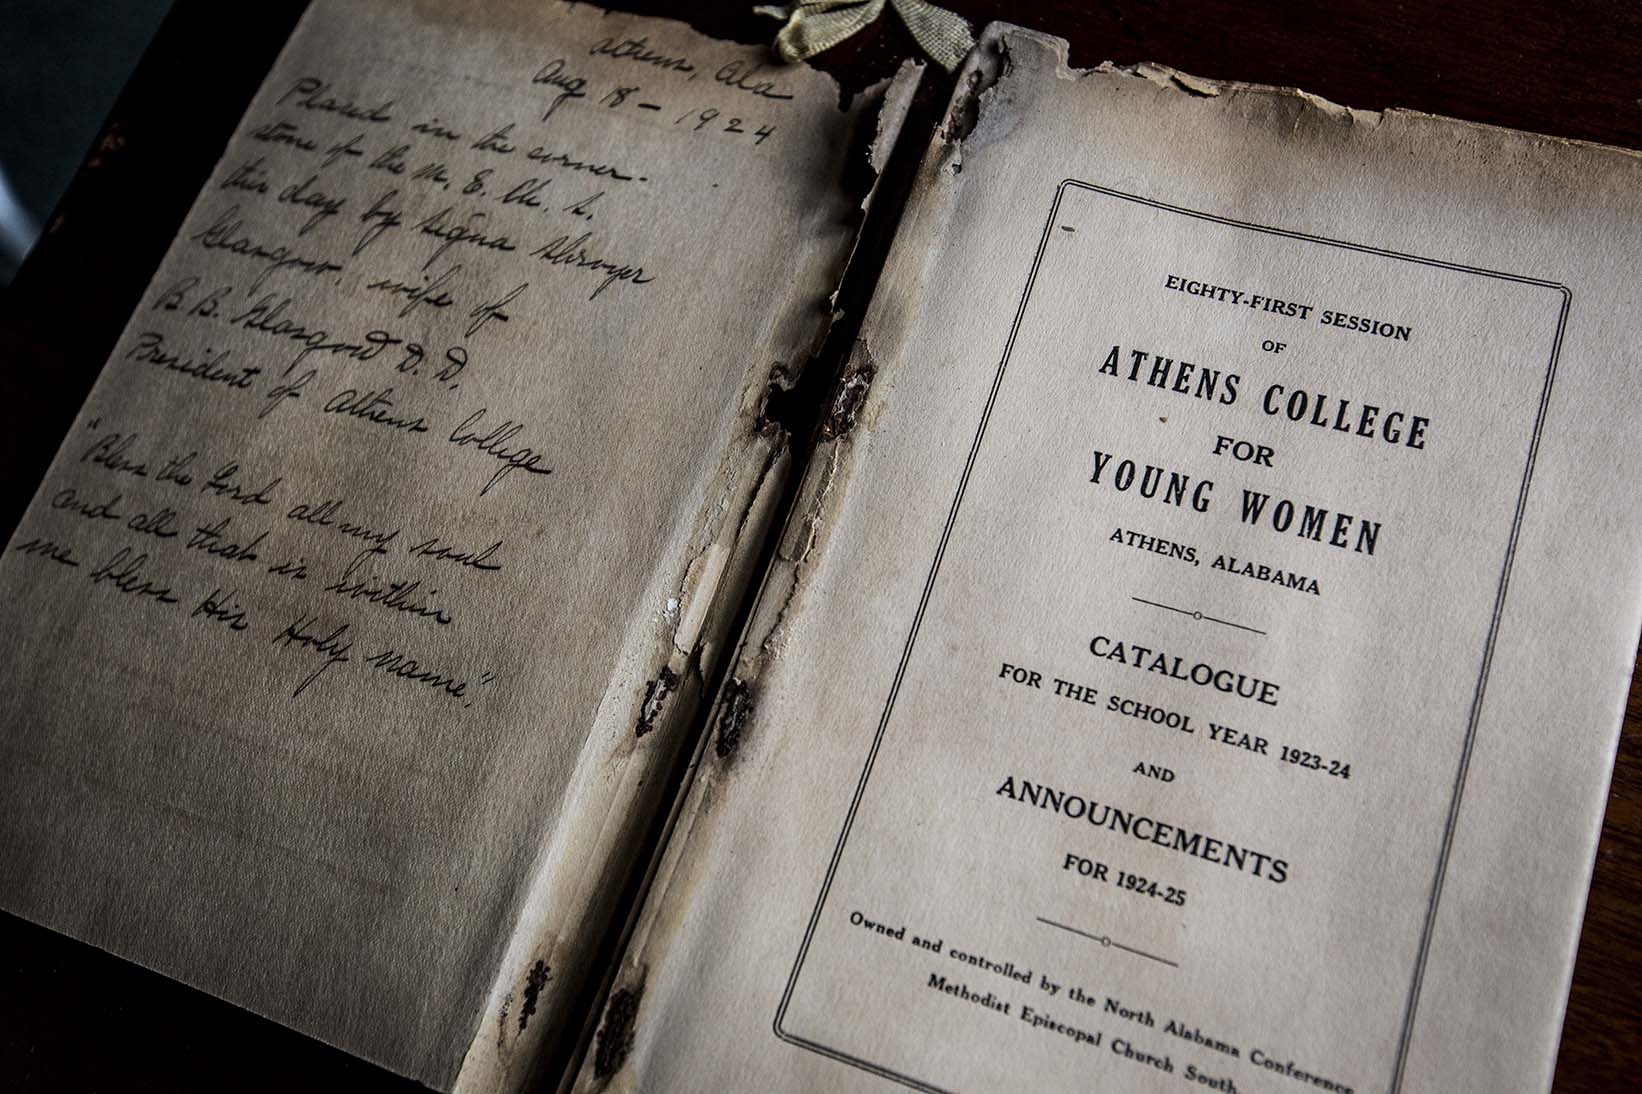 Athens, Ala
Aug 18 - 1924
Placed in the corner-
stone of the M. E. Ch. S.
this day by Signa
Glasgow, wife of
B. B. Glasgow D. D.
President of Athens College
"Bless the Lord all my soul
and all that is within
me bless His Holy name".
EIGHTY-FIRST SESSION
OF
ATHENS COLLEGE
FOR
YOUNG WOMEN
ATHENS, ALABAMA
CATALOGUE
FOR THE SCHOOL YEAR 1923-24
AND
ANNOUNCEMENTS
FOR 1924-25
Owned and controlled by the North Alabama Conference
Methodist Episcopal Church South